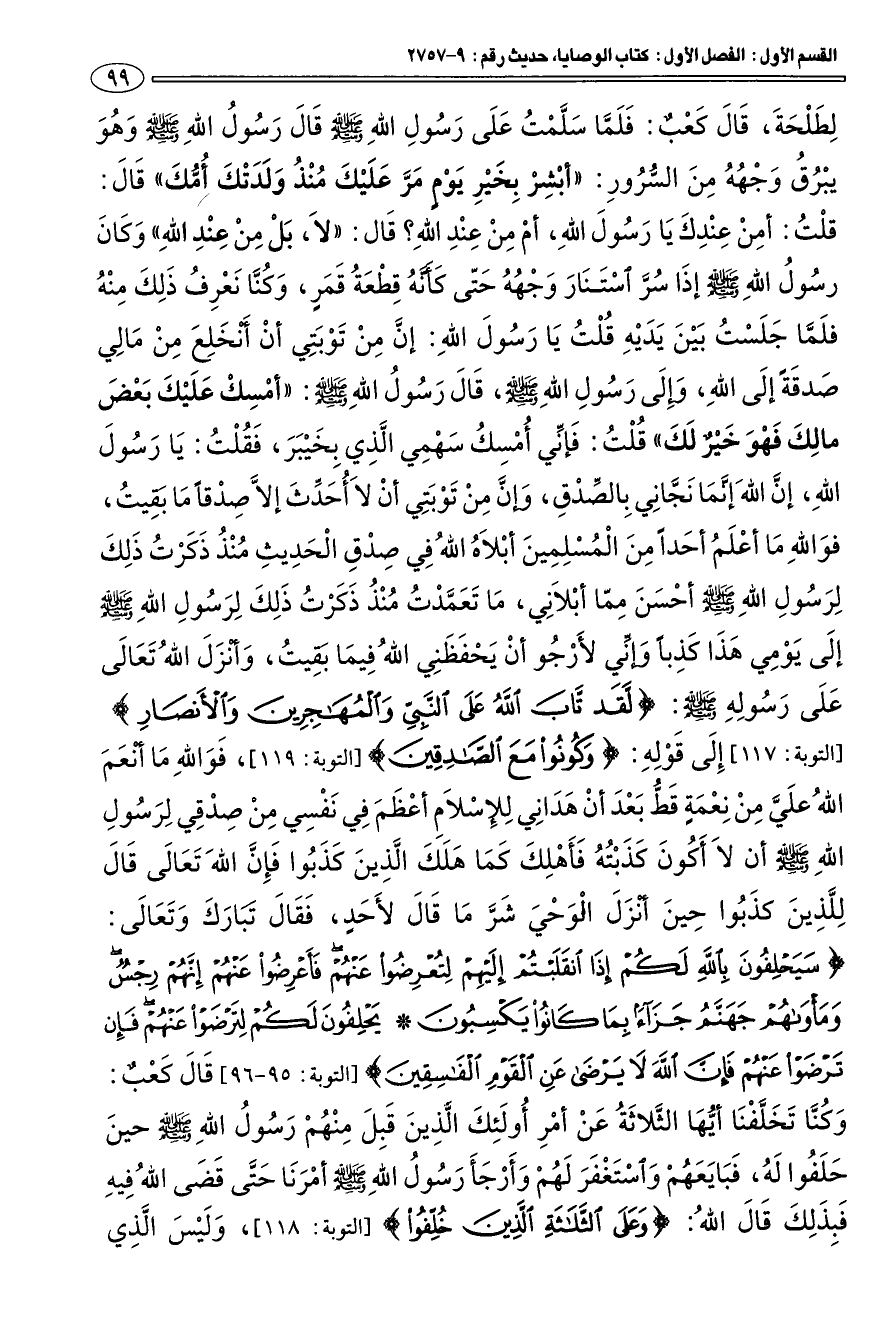 القسم الأول: الفصل الأول: كتاب الوصايا، حديث رقم: ٩-٢٧٥٧
٩٩
لِطَلْحَةَ، قَالَ كَعْبٌ: فَلَمَّا سَلَّمْتُ عَلَى رَسُولِ اللهِ ﷺ قَالَ رَسُولُ اللهِ ﷺ وَهُوَ
يبْرُقُ وَجْهُهُ مِنَ السُّرُورِ: «أَبْشِرْ بِخَيْرِ يَوْمٍ مَرَّ عَلَيْكَ مُنْذُ وَلَدَتْكَ أُمُّكَ» قَالَ:
قلْتُ: أمِنْ عِنْدِكَ يَا رَسُولَ اللهِ، أمْ مِنْ عِنْدِ اللهِ؟ قَال: «لاَ، بَلْ مِنْ عِنْدِ اللهِ» وَكَانَ
رسُولُ اللهِ ﷺ إذَا سُرَّ ٱسْتَـنَارَ وَجْهُهُ حَتّى كَأَنَّهُ قِطْعَةُ قَمَرٍ، وَكُنَّا نَعْرِفُ ذَلِكَ مِنْهُ
فلَمَّا جَلَسْتُ بَيْنَ يَدَيْهِ قُلْتُ يَا رَسُولَ اللهِ: إنَّ مِنْ تَوْبَتِي أنْ أَنْخَلِعَ مِنْ مَالِي
صَدقَةً إلَى اللهِ، وَإلَى رَسُولِ اللهِ ﷺ، قَالَ رَسُولُ اللهِ ﷺ: «أمْسِكْ عَلَيْكَ بَعْضَ
مالِكَ فَهْوَ خَيْرٌ لَكَ» قُلْتُ: فَإنِّي أُمْسِكُ سَهْمِي الَّذِي بِخَيْبَرَ، فَقُلْتُ: يَا رَسُولَ
اللهِ، إنَّ اللهَ إنَّمَا نَجَّانِي بِالصِّدْقِ، وَإنَّ مِنْ تَوْبَتِي أنْ لاَ أُحَدِّثَ إلاَّ صِدْقاً مَا بَقِيتُ،
فوَاللهِ مَا أعْلَمُ أحَداً مِنَ الْمُسْلِمِينَ أبْلاَهُ اللهُ فِي صِدْقِ الْحَدِيثِ مُنْذُ ذَكَرْتُ ذَلِكَ
لِرَسُولِ اللهِ ﷺ أحْسَنَ مِمّا أبْلاَنِي، مَا تَعَمَّدْتُ مُنْذُ ذَكَرْتُ ذَلِكَ لِرَسُولِ اللهِ ﷺ
إلَى يَوْمِي هَذَا كَذِباً وَإنِّي لأَرْجُو أنْ يَحْفَظَنِي اللهُ فِيمَا بَقِيتُ، وَأنْزَلَ اللهُ تَعَالَى
عَلَى رَسُولِهِ ﷺ: ﴿لَّقَد تَّابَ ٱللَّهُ عَلَى ٱلنَّبِيِّ وَٱلْمُهَٰجِرِينَ وَٱلْأَنصَارِ﴾
[التوبة: ١١٧] إلَى قَوْلِهِ: ﴿وَكُونُواْ مَعَ ٱلصَّٰدِقِينَ﴾ [التوبة: ١١٩]، فَوَاللهِ مَا أنْعَمَ
اللهُ علَيَّ مِنْ نِعْمَةٍ قَطُّ بَعْدَ أنْ هَدَانِي لِلإسْلاَمِ أعْظَمَ فِي نَفْسِي مِنْ صِدْقِي لِرَسُولِ
اللهِ ﷺ أن لاَ أكُونَ كَذَبْتُهُ فَأَهْلِكَ كَمَا هَلَكَ الَّذِينَ كَذَبُوا فَإنَّ اللهَ تَعَالَى قَالَ
لِلَّذِينَ كذَبُوا حِينَ أنْزَلَ الْوَحْيَ شَرَّ مَا قَالَ لأَحَدٍ، فَقَالَ تَبَارَكَ وَتَعَالَى:
﴿سَيَحْلِفُونَ بِٱللَّهِ لَكُمْ إِذَا ٱنقَلَبْتُمْ إِلَيْهِمْ لِتُعْرِضُواْ عَنْهُمْ ۖ فَأَعْرِضُواْ عَنْهُمْ إِنَّهُمْ رِجْسٌ ۖ
وَمَأْوَىٰهُمْ جَهَنَّمُ جَزَآءً بِمَا كَانُواْ يَكْسِبُونَ * يَحْلِفُونَ لَكُمْ لِتَرْضَوْاْ عَنْهُمْ ۖ فَإِن
تَرْضَوْاْ عَنْهُمْ فَإِنَّ ٱللَّهَ لَا يَرْضَىٰ عَنِ ٱلْقَوْمِ ٱلْفَٰسِقِينَ﴾ [التوبة: ٩٥-٩٦] قَالَ كَعْبٌ:
وَكُنَّا تَخَلَّفْنَا أيُّهَا الثَّلاَثَةُ عَنْ أمْرِ أُولَئِكَ الَّذِينَ قَبِلَ مِنْهُمْ رَسُولُ اللهِ ﷺ حينَ
حَلَفُوا لَهُ، فَبَايَعَهُمْ وَٱسْتَغْفَرَ لَهُمْ وَأرْجَأَ رَسُولُ اللهِ ﷺ أمْرَنَا حَتَّى قَضَى اللهُ فِيهِ
فَبِذَلِكَ قَالَ اللهُ: ﴿وَعَلَى ٱلثَّلَٰثَةِ ٱلَّذِينَ خُلِّفُواْ﴾ [التوبة: ١١٨]، وَلَيْسَ الَّذِي